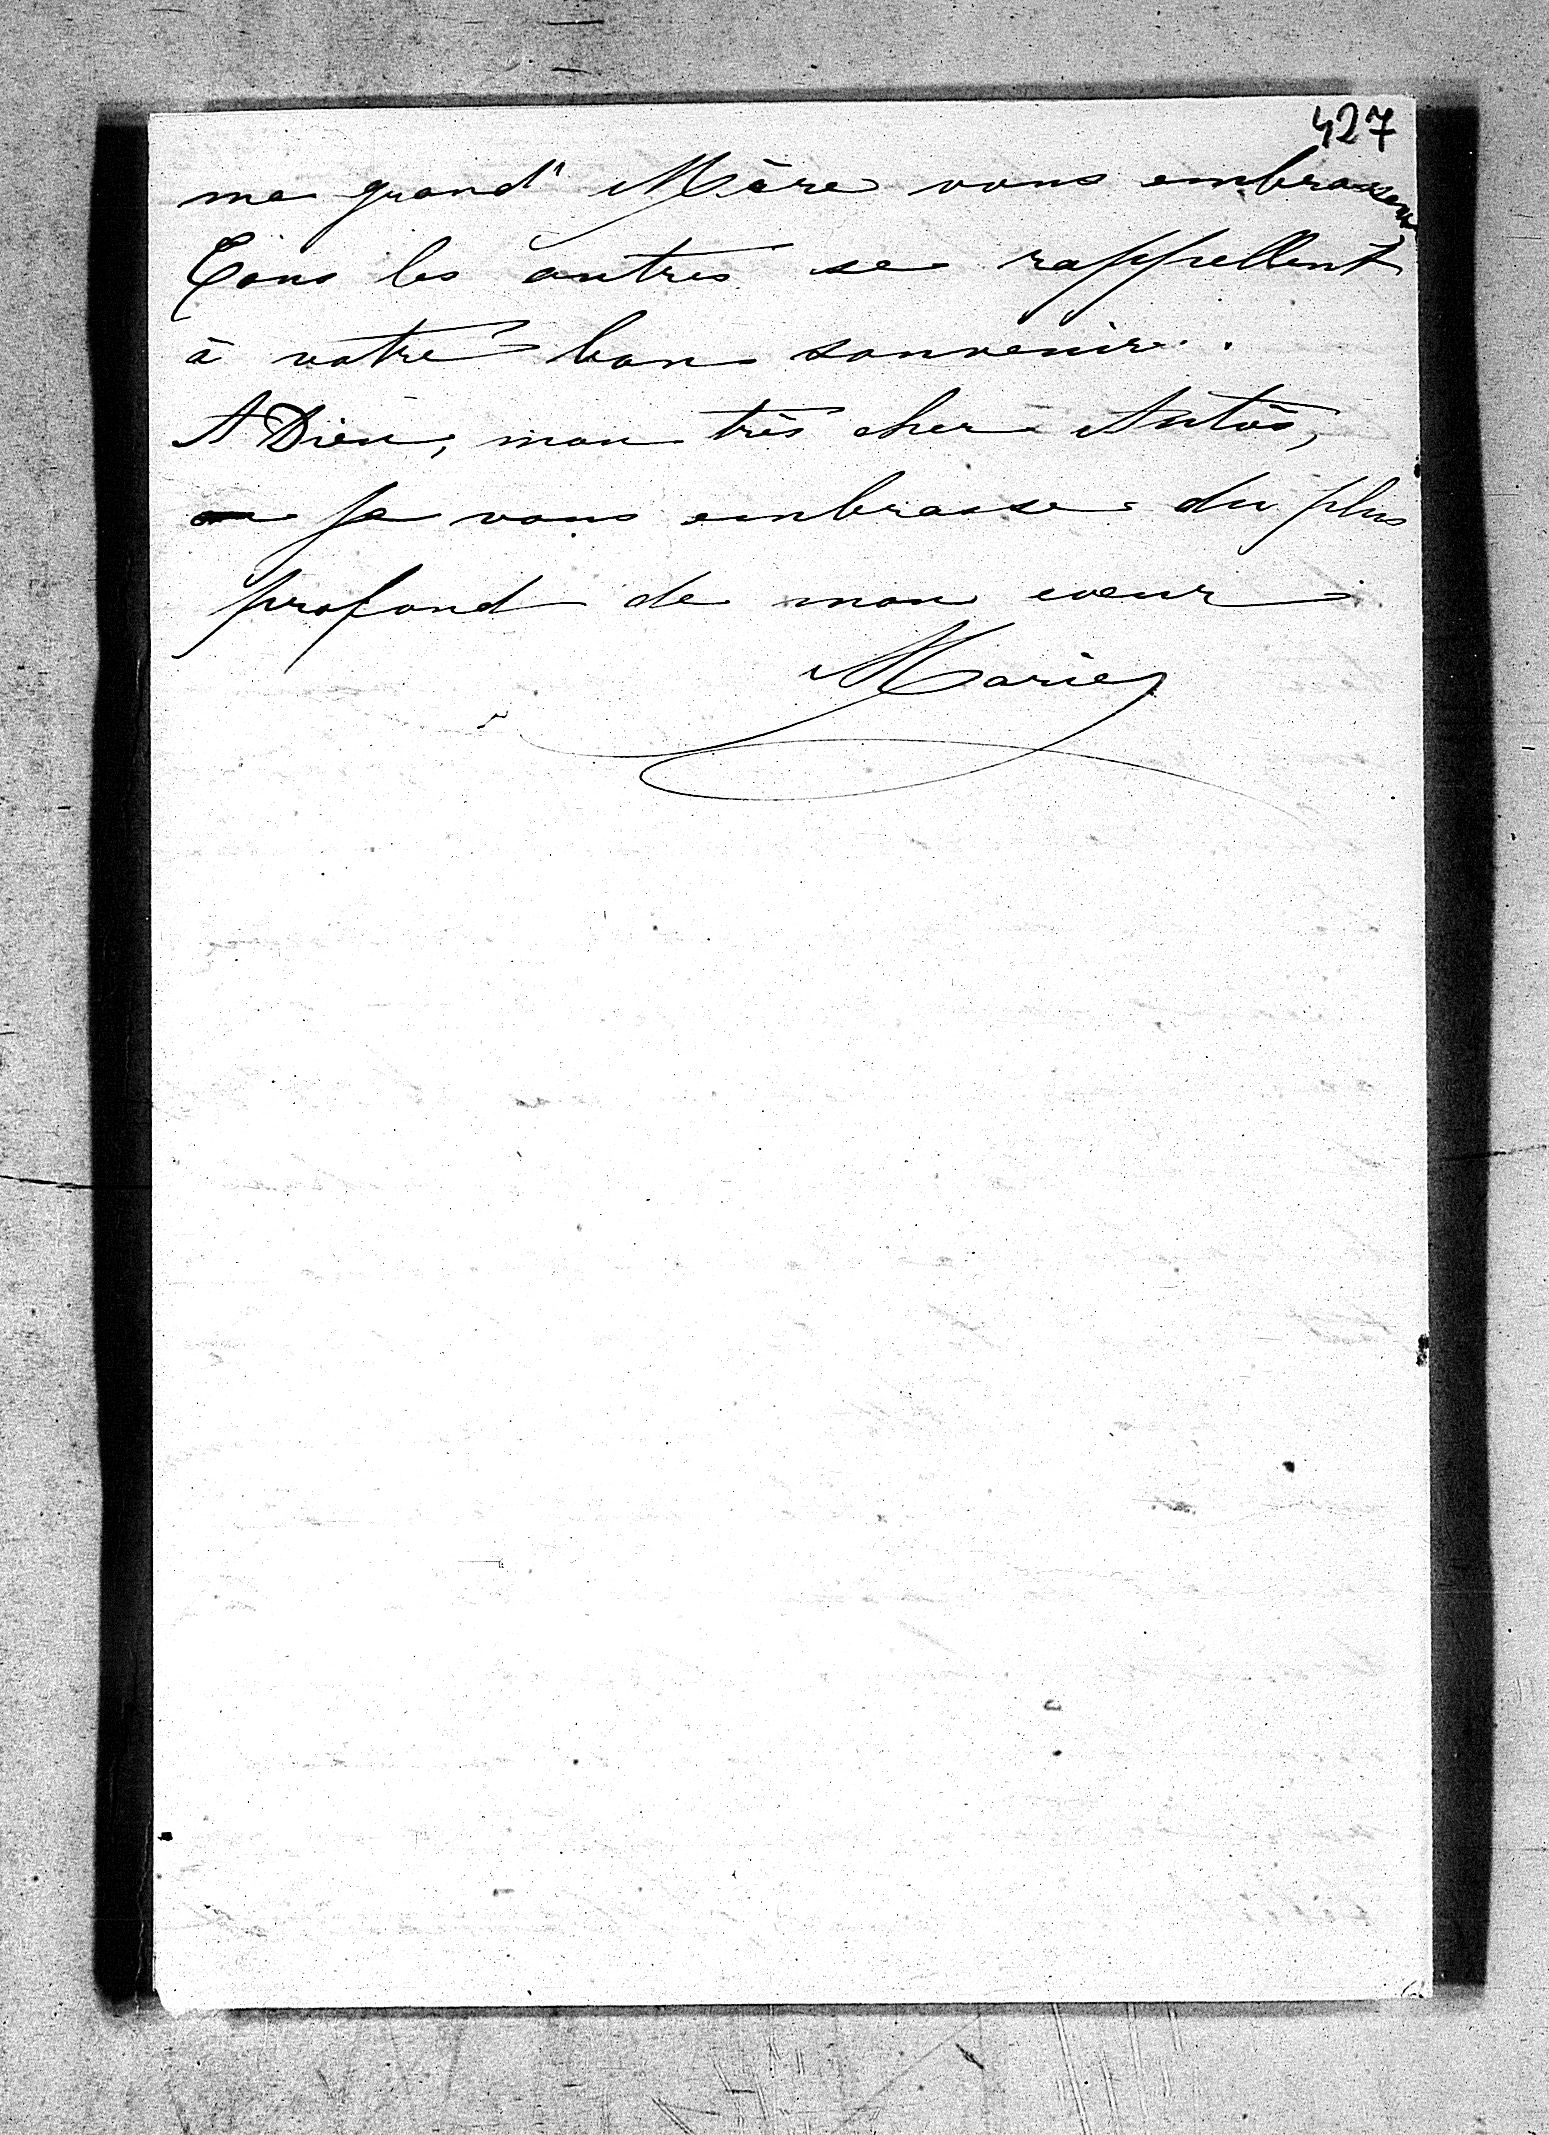 427
ma grand' Mère vous embrassent
Tous les autres se rappellent
à votre bon souvenir.
A Dieu, mon très cher Antós,
je vous embrasse du plus
profond de mon coeur
Marie